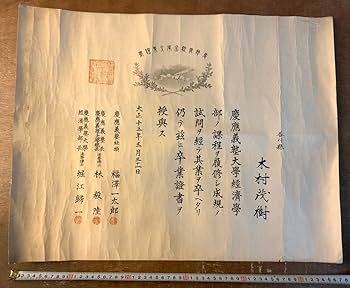 香川縣
木村茂樹
慶應義塾大學經濟學
部ノ課程ヲ履修シ成規ノ
試問ヲ經テ其業ヲ卒ヘタリ
仍テ茲ニ卒業證書ヲ
授與ス
大正十三年三月三十一日
慶應義塾社頭 福澤一太郎
慶應義塾長
慶應義塾大學總長 林毅陸
慶應義塾大學
經濟學部長 堀江歸一